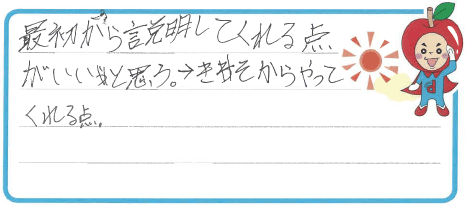 最初から説明してくれる点
がいいと思う。→きそからやって
くれる点。
d